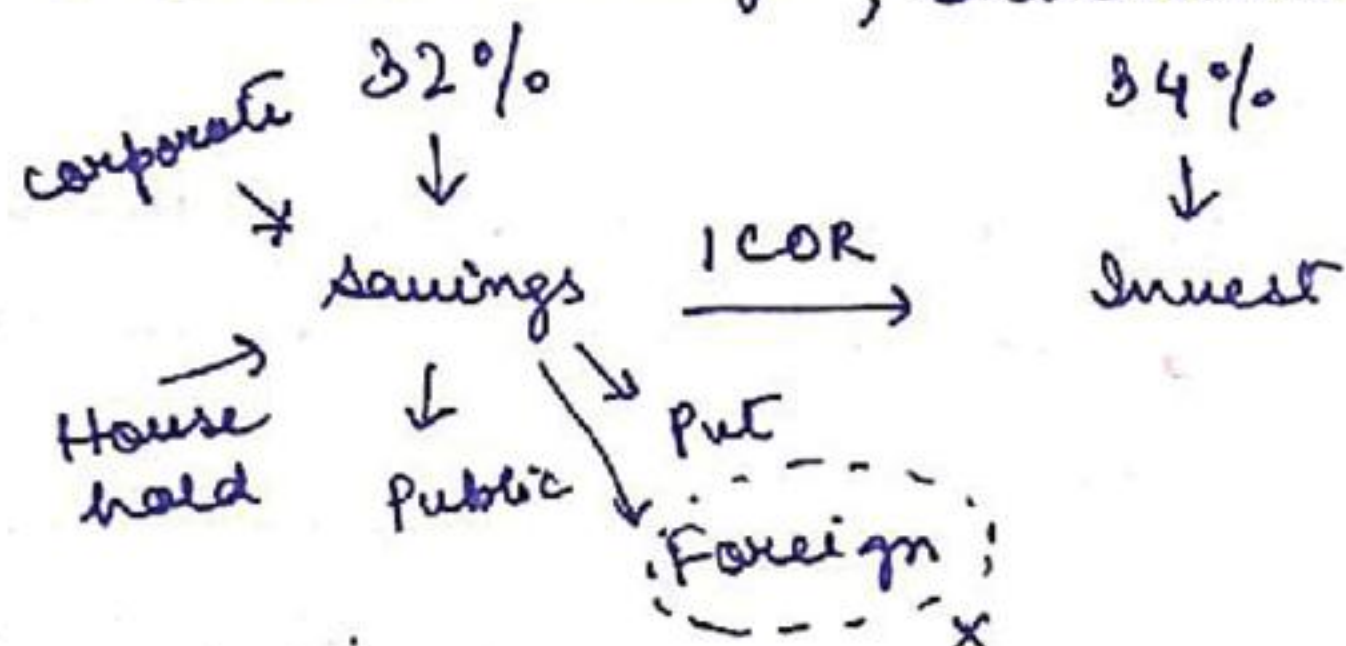 32%
34%
corporate
Savings
ICOR
Invest
House
hold
Public
Put
Foreign
x